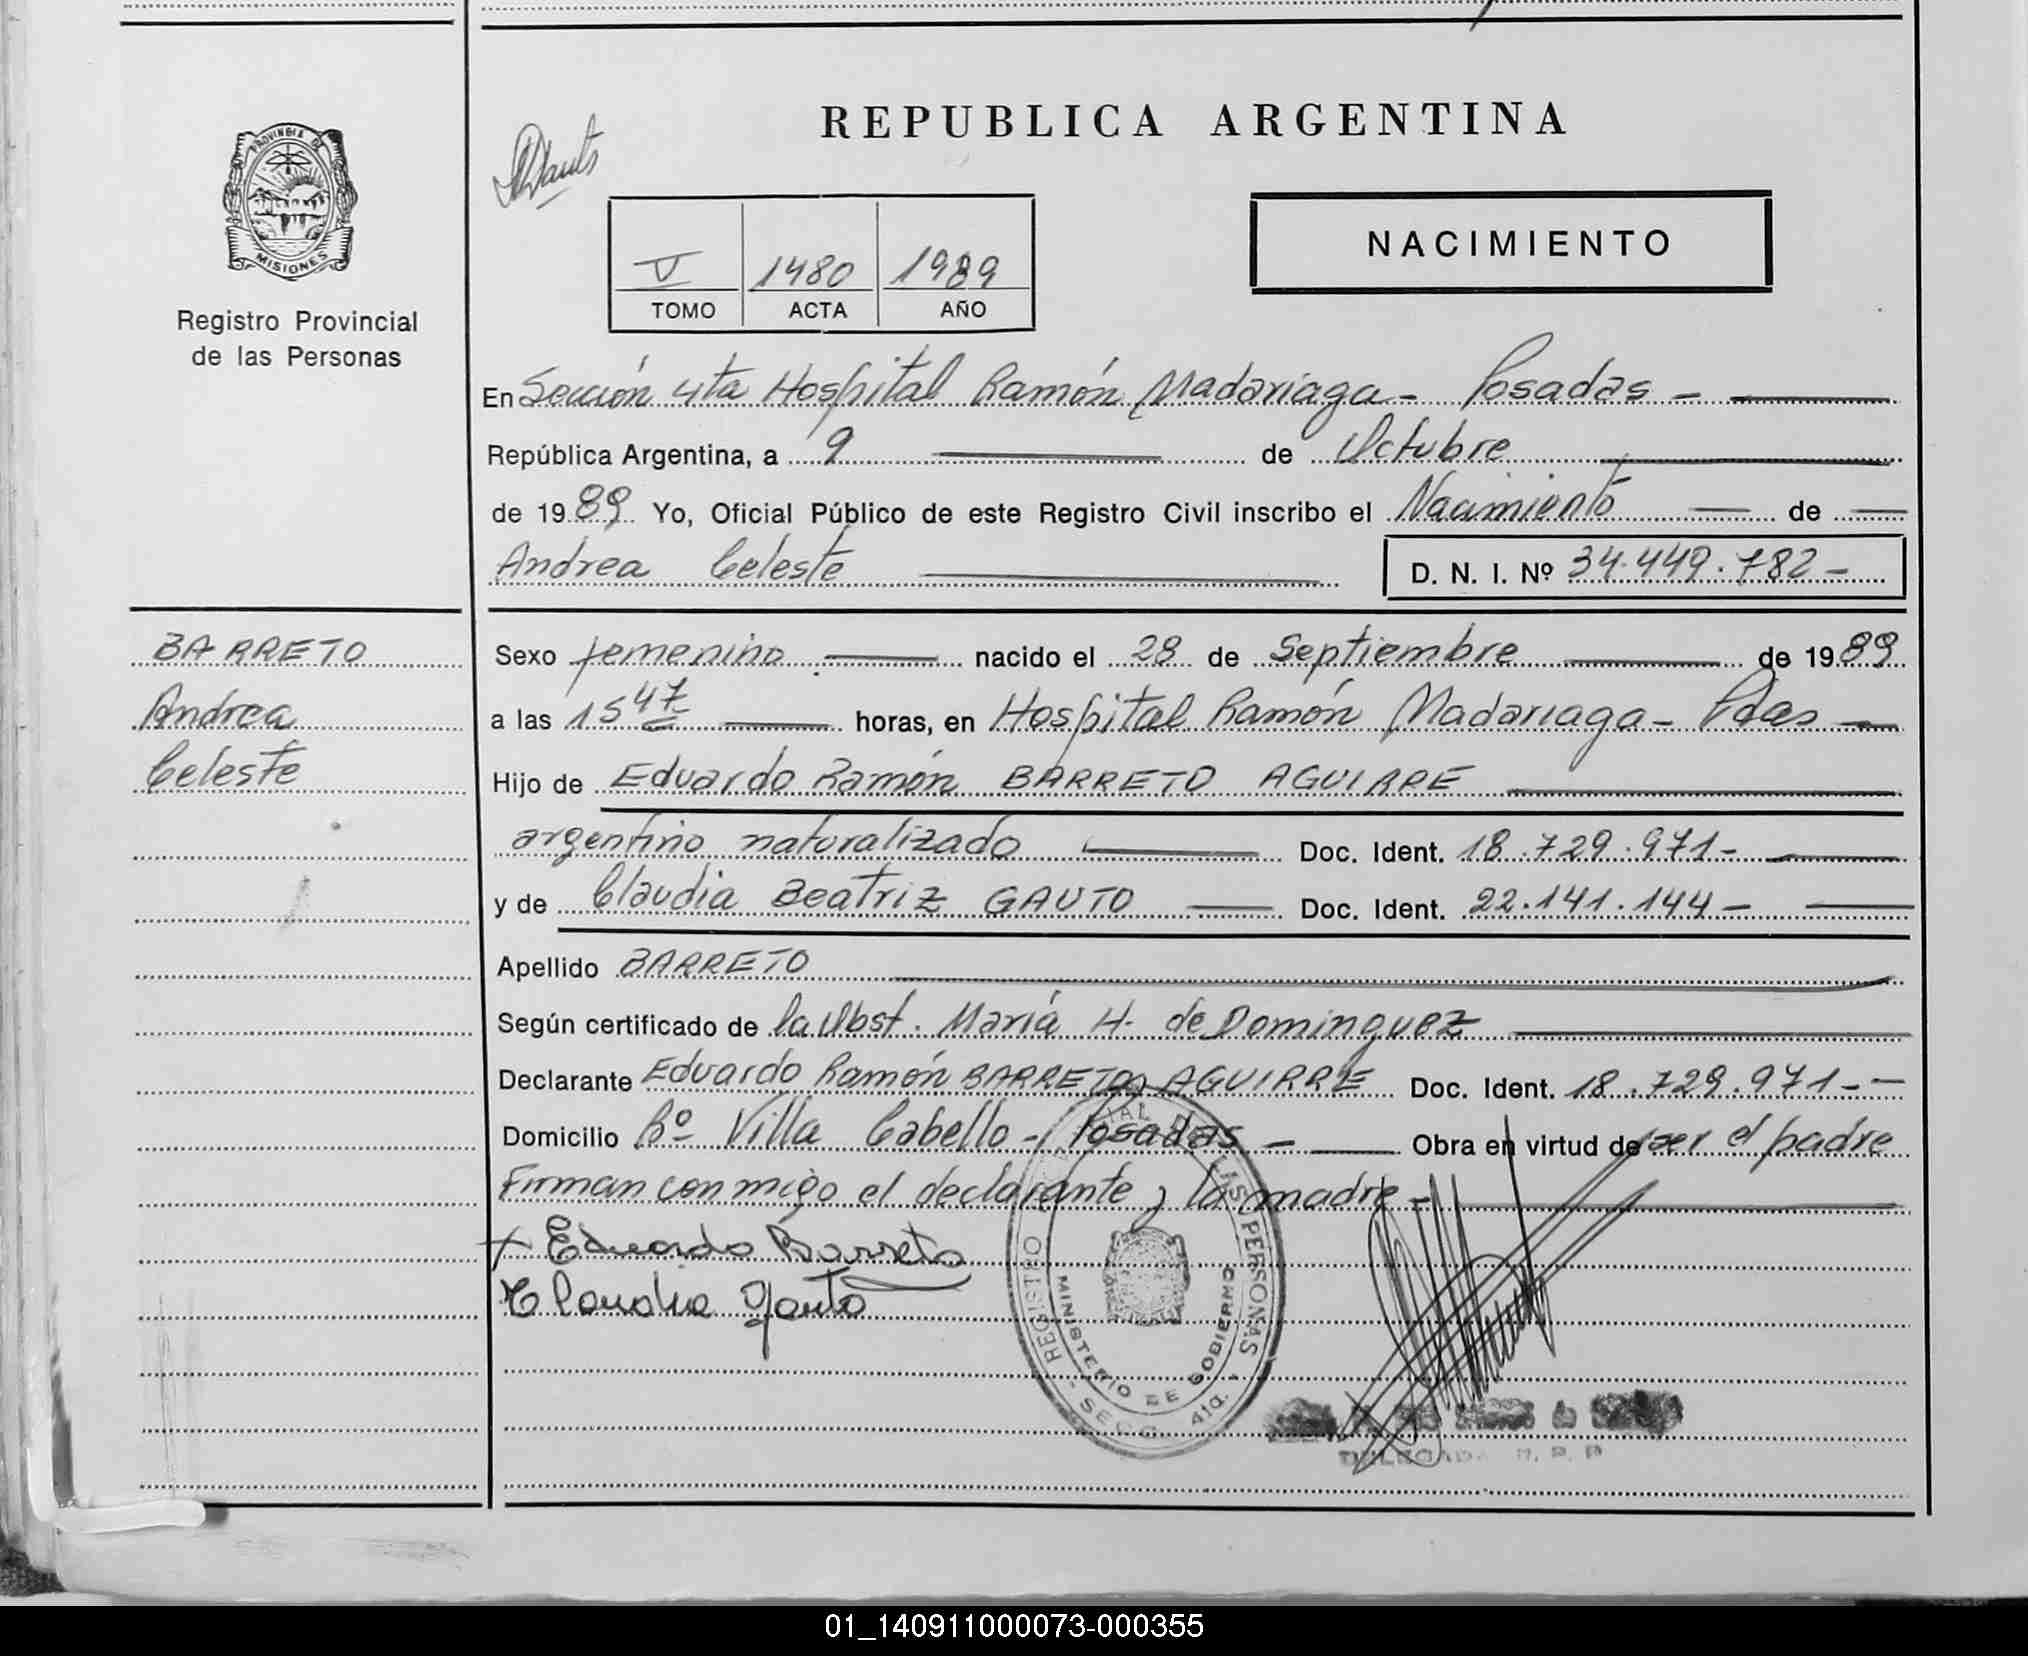 REPUBLICA ARGENTINA
PROVINCIA DE
MISIONES
Registro Provincial
de las Personas
V 1480 1989
TOMO ACTA AÑO
NACIMIENTO
En Sección 4ta Hospital Ramón Madariaga - Posadas -
República Argentina, a 9 de Octubre
de 1989 Yo, Oficial Público de este Registro Civil inscribo el Nacimiento de
Andrea Celeste
D. N. I. Nº 34.449.782 -
BARRETO
Andrea
Celeste
Sexo femenino nacido el 28 de Septiembre de 1989
a las 15 47 horas, en Hospital Ramón Madariaga - Pdas -
Hijo de Eduardo Ramón BARRETO AGUIRRE
argentino naturalizado Doc. Ident. 18.729.971 -
y de Claudia Beatriz GAUTO Doc. Ident. 22.141.144 -
Apellido BARRETO
Según certificado de la Obst. María H. de Dominguez
Declarante Eduardo Ramón BARRETO AGUIRRE Doc. Ident. 18.729.971 -
Domicilio Bº Villa Cabello - Posadas - Obra en virtud de ser el padre
Firman con migo el declarante y la madre -
+ Eduardo Barreto
Claudia Gauto
REGISTRO LAS PERSONAS
MINISTERIO DE GOBIERNO
- SECC. 4ta. -
DELEGADA R. P. P
01_140911000073-000355